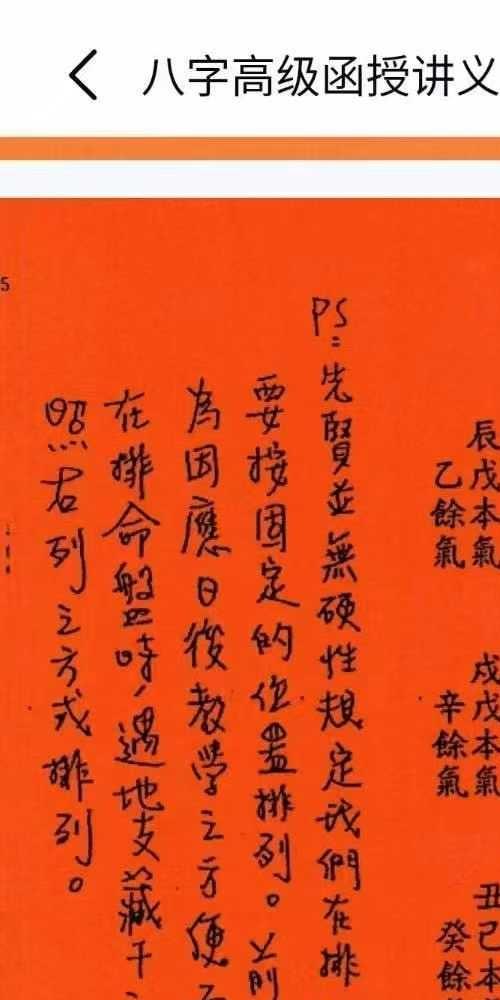 八字高级函授讲义
辰戊本氣
乙餘氣
戌戊本氣
辛餘氣
丑己本
癸餘
PS:先賢並無硬性規定我們在排
要按固定的位置排列。
為因應日後教學之方便
在排命盤時,遇地支藏干
照右列之方式排列。
5